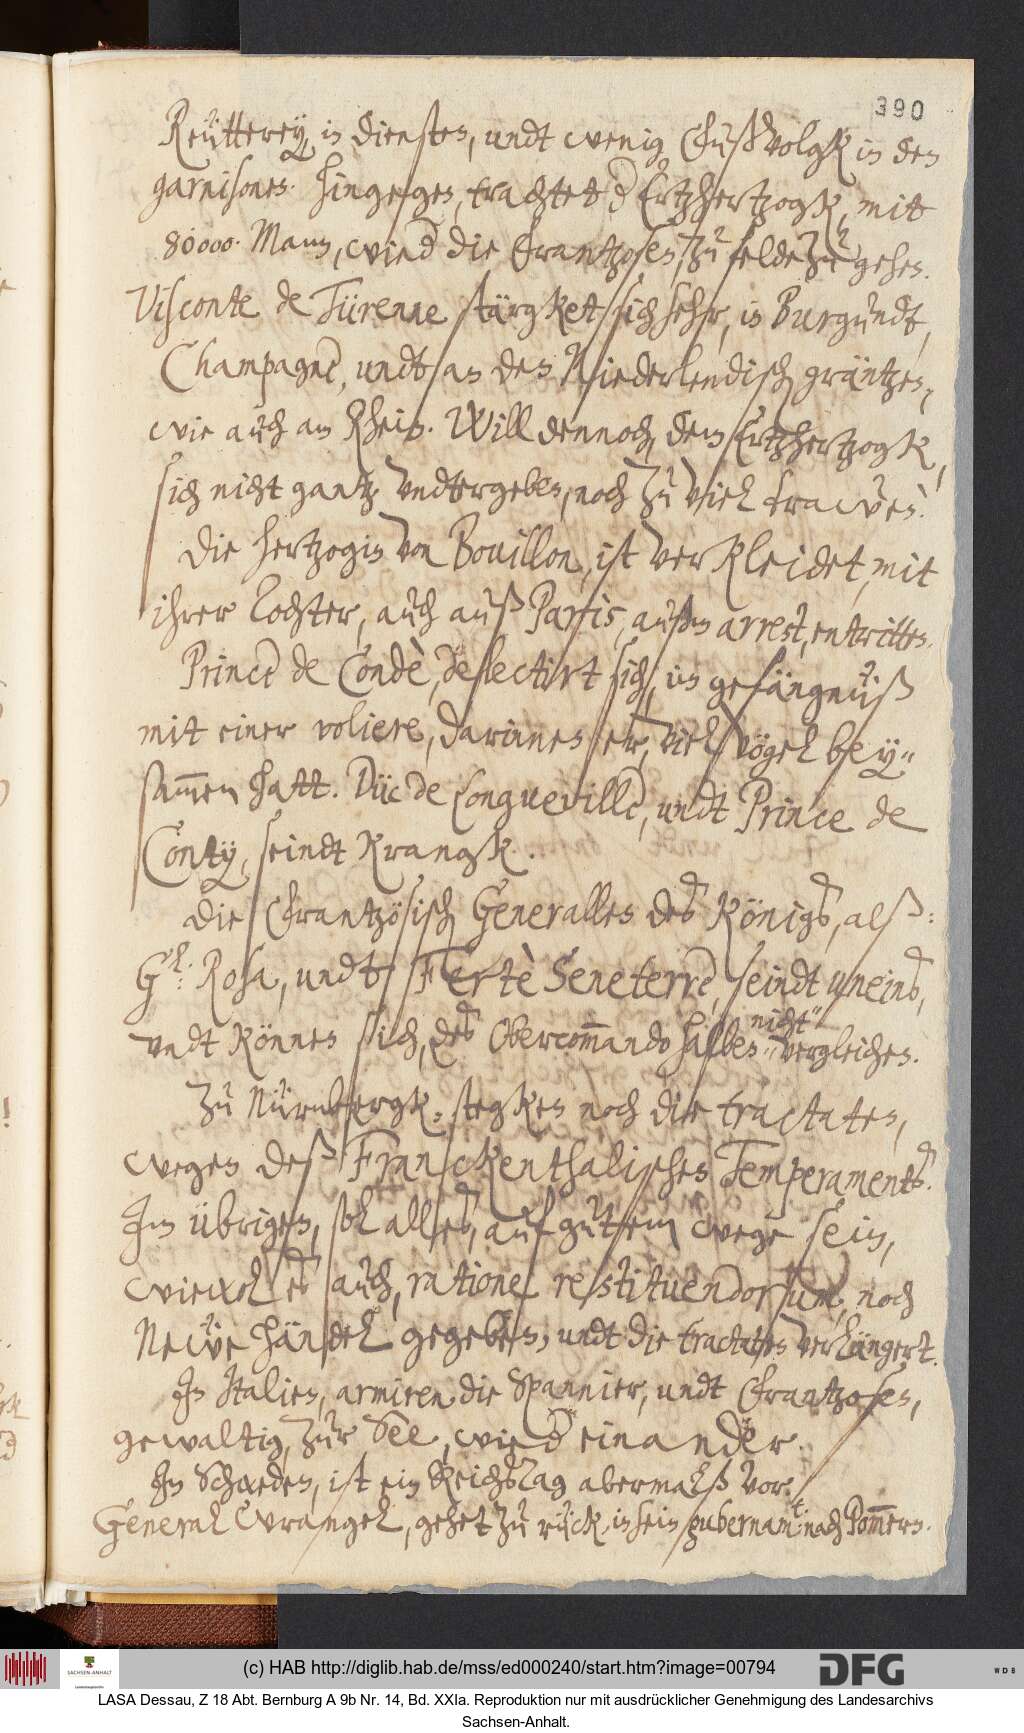 390
Reütterey, in diensten, undt wenig Fußvolgk in den
garnisonen. Hingegen, trachtet der Ertzhertzogk, mit
80000 Mann, wieder die Frantzosen, zu felde zu gehen.
Visconte de Türenne stärgket sich sehr, in Burgundt,
Champagne, undt an den Niederlendisch gräntzen,
wie auch am Rhein. Will dennoch, dem Ertzhertzogk,
sich nicht gantz undtergeben, noch zu viel trawen.
Die Hertzogin von Bouillon, ist verkleidet, mit
ihrer Tochter, auch auß Paris, außm arrest, entritten.
Prince de Condè, delectirt sich, im gefängnüß
mit einer voliere, darinnen er, viel vögel bey¨
sam̅en hatt. Düc de Longueville, undt Prince de
Conty, seindt Krangk.
Die Frantzösisch Generalles des Königs, alß:
Gl: Rosa, undt Fertè Seneterre, seindt uneins,
nicht"
undt können sich, des Obercom̅ando halben " vergleichen.
Zu Nürnbergk, stegken noch die tractaten,
wegen deß Franckenthalischen Temperaments.
Im übrigen, sol alles, auf gutem wege sein,
wiewol es auch, ratione restituendorsum, noch
Newe händel gegeben, undt die tractaten verlängert.
In Italien, armiren die Spannier, undt Frantzosen,
gewaltig, zur See, wieder einander.
In Schweden, ist ein Reichstag abermalß vor.
General Wrangel, gehet zu rück, in sein gubernamt. nach Pom̅ern.
(c) HAB http://diglib.hab.de/mss/ed000240/start.htm?image=00794
SACHSEN-ANHALT
DFG
WDB
LASA Dessau, Z 18 Abt. Bernburg A 9b Nr. 14, Bd. XXIa. Reproduktion nur mit ausdrücklicher Genehmigung des Landesarchivs
Sachsen-Anhalt.